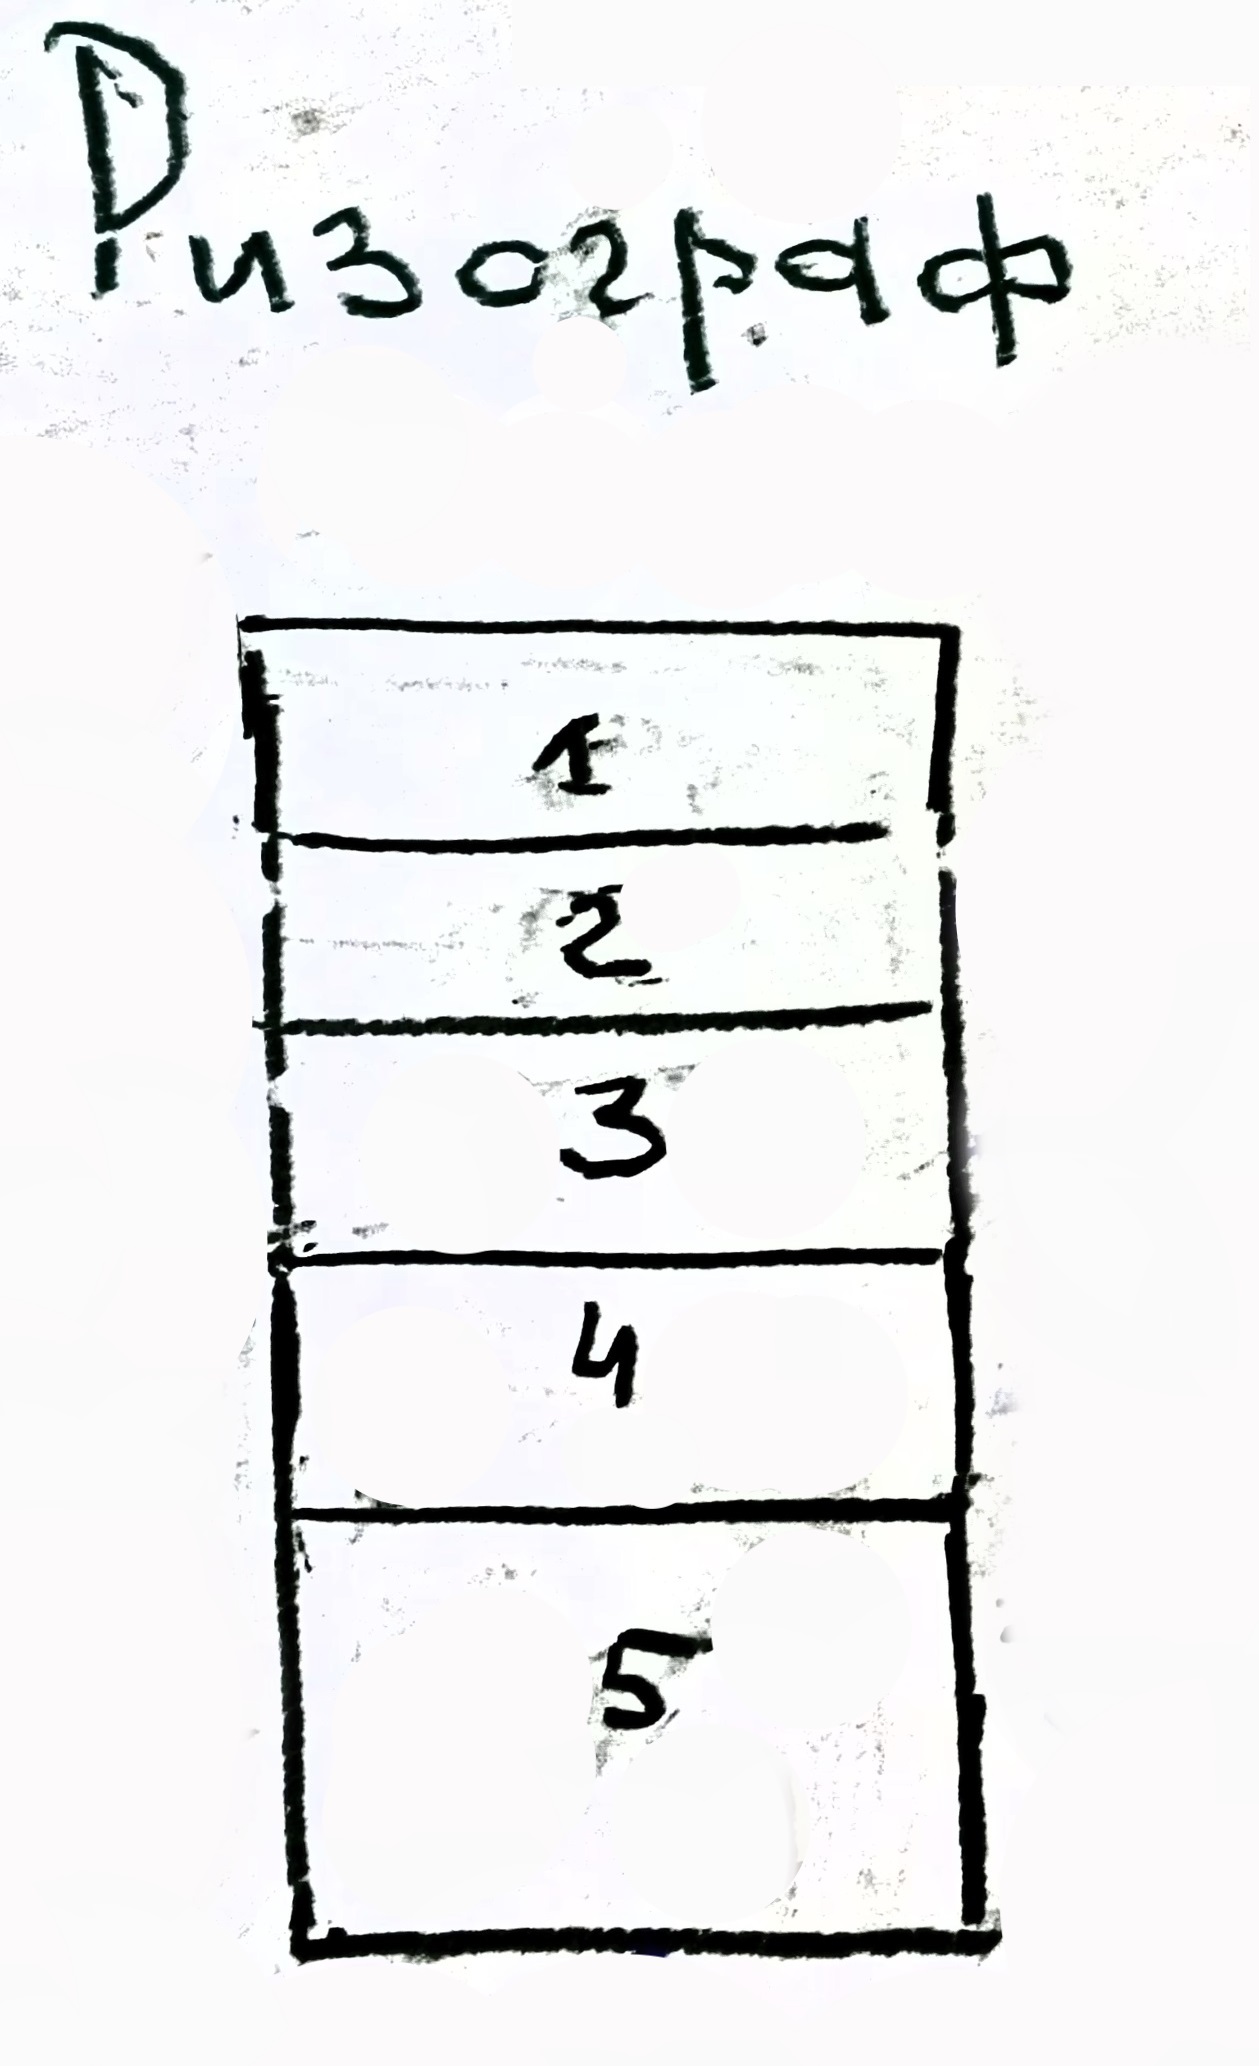 Ризограф
1
2
3
4
5